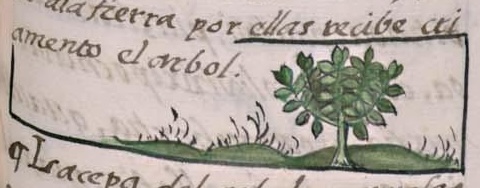 ala tierra por ellas recibe cri
amento el arbol.
¶ La cepa del